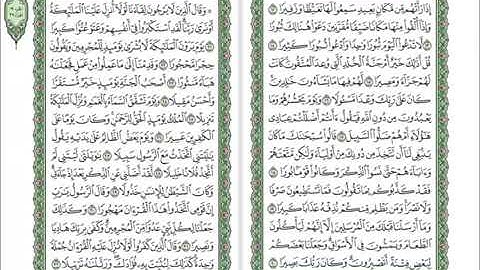 إِذَا رَأَتْهُم مِّن مَّكَانٍۭ بَعِيدٍ سَمِعُوا۟ لَهَا تَغَيُّظًا وَزَفِيرًا ١٢
وَإِذَآ أُلْقُوا۟ مِنْهَا مَكَانًا ضَيِّقًا مُّقَرَّنِينَ دَعَوْا۟ هُنَالِكَ ثُبُورًا ١٣
لَّا تَدْعُوا۟ ٱلْيَوْمَ ثُبُورًا وَٰحِدًا وَٱدْعُوا۟ ثُبُورًا كَثِيرًا ١٤
قُلْ أَذَٰلِكَ خَيْرٌ أَمْ جَنَّةُ ٱلْخُلْدِ ٱلَّتِى وُعِدَ ٱلْمُتَّقُونَ كَانَتْ
لَهُمْ جَزَآءً وَمَصِيرًا ١٥ لَّهُمْ فِيهَا مَا يَشَآءُونَ خَٰلِدِينَ
كَانَ عَلَىٰ رَبِّكَ وَعْدًا مَّسْـُٔولًا ١٦ وَيَوْمَ يَحْشُرُهُمْ وَمَا
يَعْبُدُونَ مِن دُونِ ٱللَّهِ فَيَقُولُ ءَأَنتُمْ أَضْلَلْتُمْ عِبَادِى
هَٰٓؤُلَآءِ أَمْ هُمْ ضَلُّوا۟ ٱلسَّبِيلَ ١٧ قَالُوا۟ سُبْحَٰنَكَ مَا كَانَ
يَنۢبَغِى لَنَآ أَن نَّتَّخِذَ مِن دُونِكَ مِنْ أَوْلِيَآءَ وَلَٰكِن مَّتَّعْتَهُمْ
وَءَابَآءَهُمْ حَتَّىٰ نَسُوا۟ ٱلذِّكْرَ وَكَانُوا۟ قَوْمًۢا بُورًا ١٨
فَقَدْ كَذَّبُوكُم بِمَا تَقُولُونَ فَمَا تَسْتَطِيعُونَ صَرْفًا
وَلَا نَصْرًا وَمَن يَظْلِم مِّنكُمْ نُذِقْهُ عَذَابًا كَبِيرًا ١٩
وَمَآ أَرْسَلْنَا قَبْلَكَ مِنَ ٱلْمُرْسَلِينَ إِلَّآ إِنَّهُمْ لَيَأْكُلُونَ
ٱلطَّعَامَ وَيَمْشُونَ فِى ٱلْأَسْوَاقِ وَجَعَلْنَا بَعْضَكُمْ
لِبَعْضٍ فِتْنَةً أَتَصْبِرُونَ وَكَانَ رَبُّكَ بَصِيرًا ٢٠
۞ وَقَالَ ٱلَّذِينَ لَا يَرْجُونَ لِقَآءَنَا لَوْلَآ أُنزِلَ عَلَيْنَا ٱلْمَلَٰٓئِكَةُ
أَوْ نَرَىٰ رَبَّنَا لَقَدِ ٱسْتَكْبَرُوا۟ فِىٓ أَنفُسِهِمْ وَعَتَوْ عُتُوًّا كَبِيرًا
٢١ يَوْمَ يَرَوْنَ ٱلْمَلَٰٓئِكَةَ لَا بُشْرَىٰ يَوْمَئِذٍ لِّلْمُجْرِمِينَ وَيَقُولُونَ
حِجْرًا مَّحْجُورًا ٢٢ وَقَدِمْنَآ إِلَىٰ مَا عَمِلُوا۟ مِنْ عَمَلٍ فَجَعَلْنَٰهُ
هَبَآءً مَّنثُورًا ٢٣ أَصْحَٰبُ ٱلْجَنَّةِ يَوْمَئِذٍ خَيْرٌ مُّسْتَقَرًّا
وَأَحْسَنُ مَقِيلًا ٢٤ وَيَوْمَ تَشَقَّقُ ٱلسَّمَآءُ بِٱلْغَمَٰمِ وَنُزِّلَ ٱلْمَلَٰٓئِكَةُ
تَنزِيلًا ٢٥ ٱلْمُلْكُ يَوْمَئِذٍ ٱلْحَقُّ لِلرَّحْمَٰنِ وَكَانَ يَوْمًا عَلَى
ٱلْكَٰفِرِينَ عَسِيرًا ٢٦ وَيَوْمَ يَعَضُّ ٱلظَّالِمُ عَلَىٰ يَدَيْهِ يَقُولُ
يَٰلَيْتَنِى ٱتَّخَذْتُ مَعَ ٱلرَّسُولِ سَبِيلًا ٢٧ يَٰوَيْلَتَىٰ لَيْتَنِى لَمْ
أَتَّخِذْ فُلَانًا خَلِيلًا ٢٨ لَّقَدْ أَضَلَّنِى عَنِ ٱلذِّكْرِ بَعْدَ إِذْ جَآءَنِى
وَكَانَ ٱلشَّيْطَٰنُ لِلْإِنسَٰنِ خَذُولًا ٢٩ وَقَالَ ٱلرَّسُولُ يَٰرَبِّ
إِنَّ قَوْمِى ٱتَّخَذُوا۟ هَٰذَا ٱلْقُرْءَانَ مَهْجُورًا ٣٠ وَكَذَٰلِكَ
جَعَلْنَا لِكُلِّ نَبِىٍّ عَدُوًّا مِّنَ ٱلْمُجْرِمِينَ وَكَفَىٰ بِرَبِّكَ هَادِيًا
وَنَصِيرًا ٣١ وَقَالَ ٱلَّذِينَ كَفَرُوا۟ لَوْلَا نُزِّلَ عَلَيْهِ ٱلْقُرْءَانُ جُمْلَةً
وَٰحِدَةً كَذَٰلِكَ لِنُثَبِّتَ بِهِۦ فُؤَادَكَ وَرَتَّلْنَٰهُ تَرْتِيلًا ٣٢